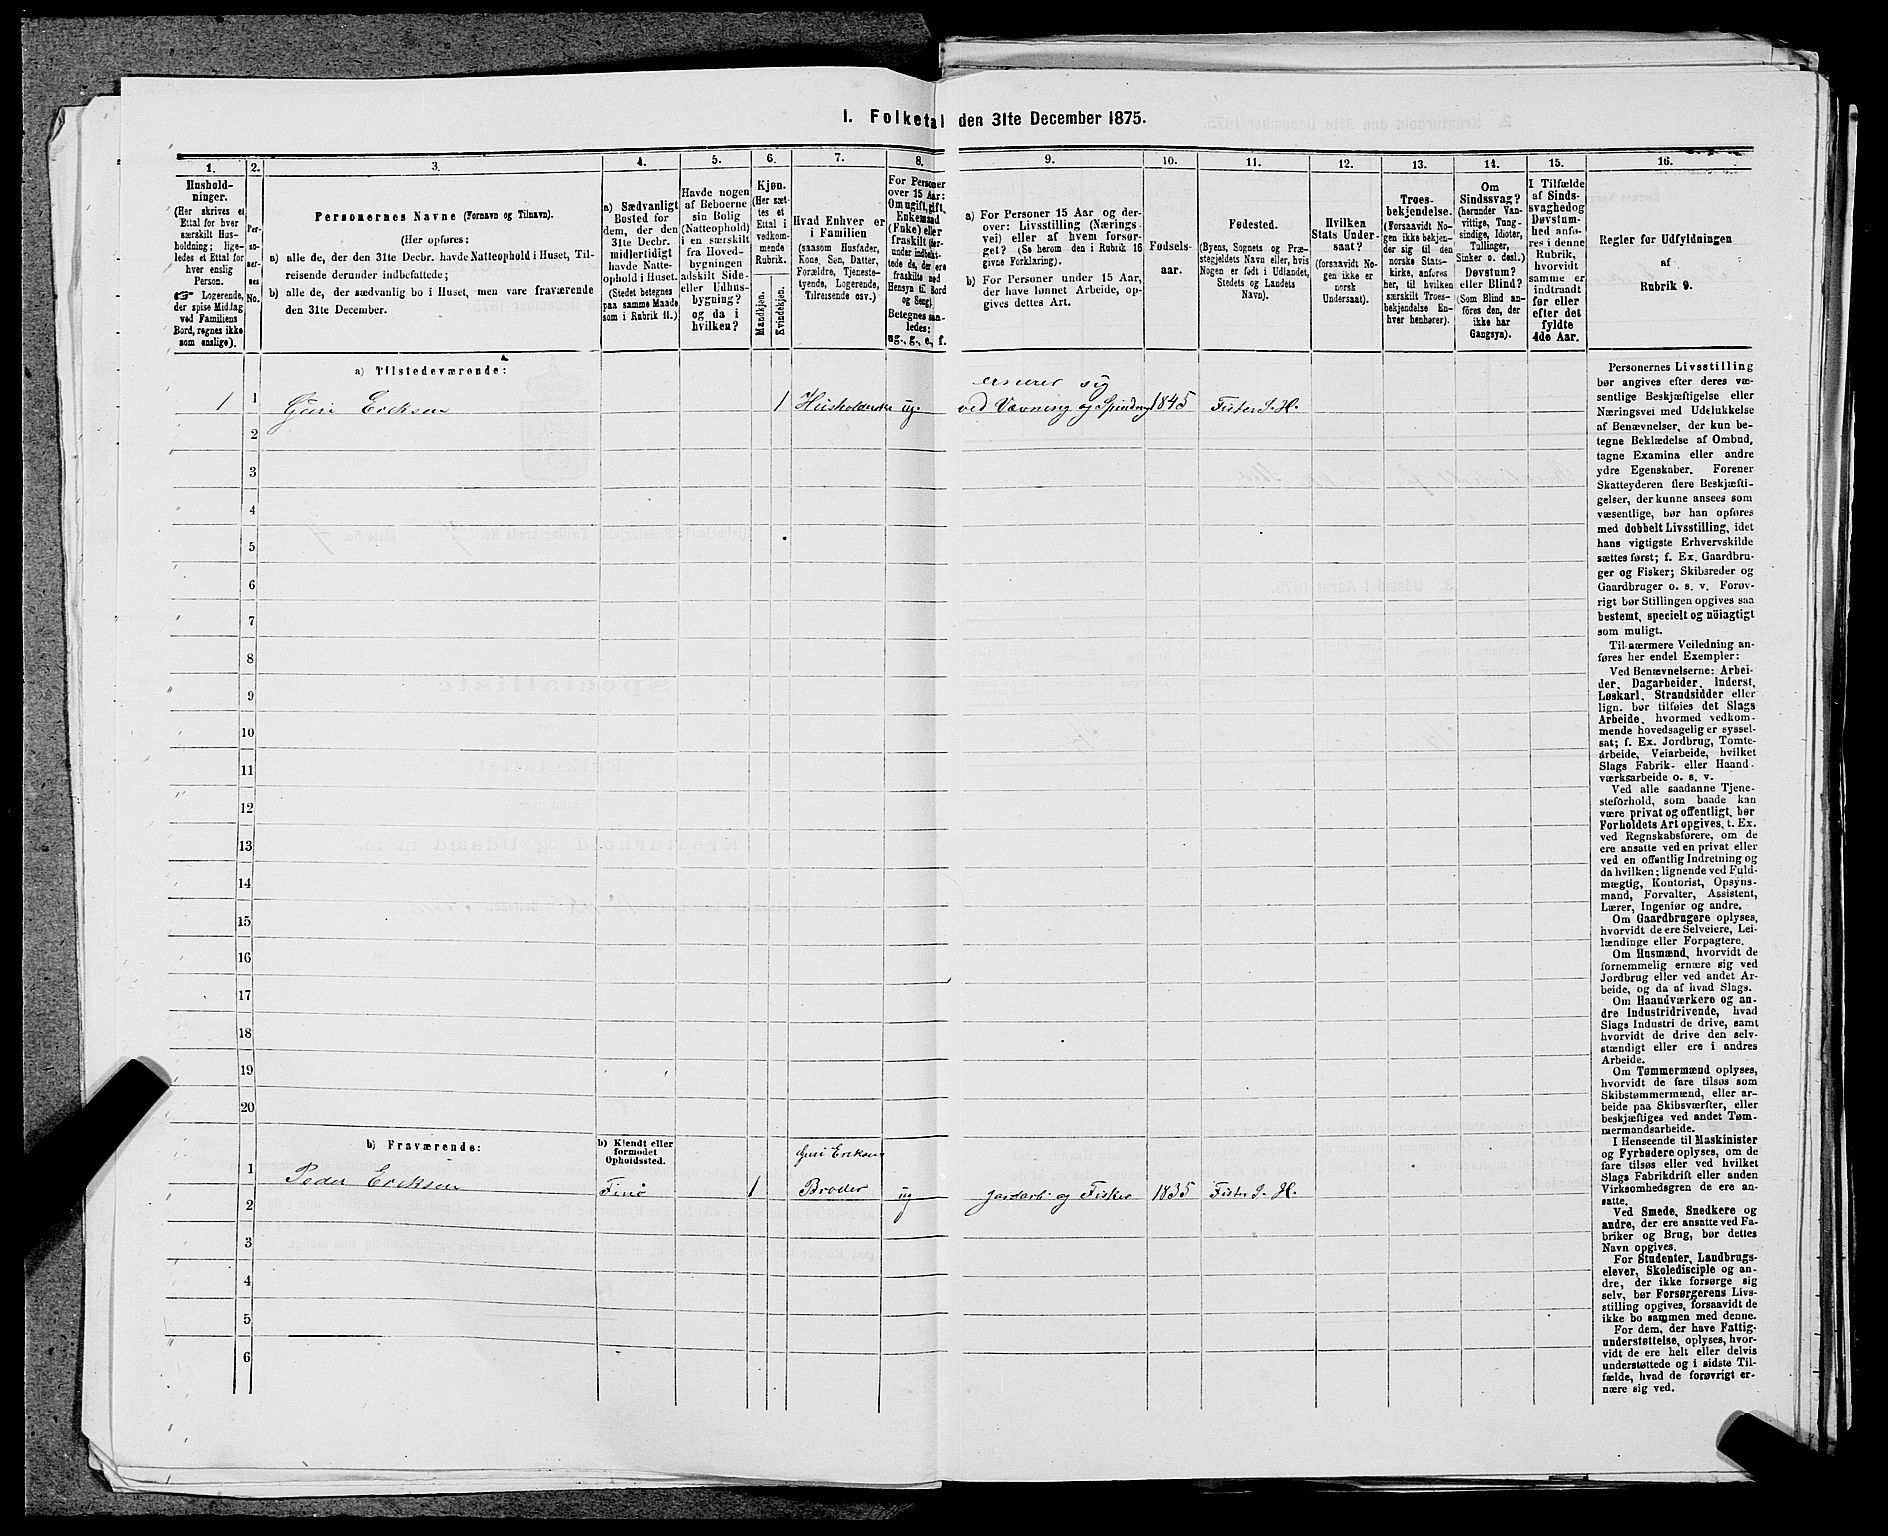 1. Folketal den 31te December 1875.
1.
2.
3.
4.
5.
6.
7.
8.
9.
10.
11.
12.
13.
14.
15.
16.
Hushold-
ninger.
(Her skrives et
Ettal for hver
særskilt Hus-
holdning; lige-
ledes et Ettal for
hver enslig
Person.
☞ Logerende,
der spise Middag
ved Familiens
Bord, regnes ikke
som enslige).
Per-
so-
ner-
nes
No.
Personernes Navne (Fornavn og Tilnavn).
(Her opføres:
a) alle de, der den 31te Decbr. havde Natteophold i Huset, Til-
reisende derunder indbefattede;
b) alle de, der sædvanlig bo i Huset, men vare fraværende
den 31te December.
a) Sædvanligt
Bosted for
dem, der den
31te Decbr.
midlertidigt
havde Natte-
ophold i Huset.
(Stedet betegnes
paa samme Maade
som i Rubrik 11.)
Havde nogen
af Beboerne
sin Bolig
(Natteophold)
i en særskilt
fra Hoved-
bygningen
adskilt Side-
eller Udhus-
bygning?
og da i
hvilken?
Kjøn.
(Her sæt-
tes et
Ettal i
vedkom-
mende
Rubrik.
Mandkjøn.
Kvindekjøn.
Hvad Enhver er
i Familien
(saasom Husfader,
Kone, Søn, Datter,
Forældre, Tjeneste-
tyende, Logerende,
Tilreisende osv.)
For Personer
over 15 Aar:
Om ugift, gift,
Enkemand
(Enke) eller
fraskilt (her-
under indbefat-
tede de, der ere
fraskilte med
Hensyn til Bord
og Seng).
Betegnes saa-
ledes:
ug., g., e., f.
a) For Personer 15 Aar og der-
over: Livsstilling (Nærings-
vei) eller af hvem forsør-
get? (Se herom den i Rubrik 16
givne Forklaring).
b) For Personer under 15 Aar,
der have lønnet Arbeide, op-
gives dettes Art.
Fødsels-
aar.
Fødested.
(Byens, Sognets og Præ-
stegjeldets Navn eller, hvis
Nogen er født i Udlandet,
Stedets og Landets
Navn).
Hvilken
Stats Under-
saat?
(forsaavidt No-
gen ikke er
norsk
Undersaat).
Troes-
bekjendelse.
(Forsaavidt No-
gen ikke bekjen-
der sig til den
norske Stats-
kirke, anføres
her, til hvilken
særskilt Troes-
bekjendelse En-
hver henhører).
Om
Sindssvag?
(herunder Van-
vittige, Tung-
sindige, Idioter,
Tullinger,
Sinker o. desl.)
Døvstum?
eller Blind?
(Som Blind an-
føres den, der
ikke har
Gangsyn).
I Tilfælde
af Sinds-
svaghed og
Døvstum-
hed anfø-
res i denne
Rubrik,
hvorvidt
samme er
indtraadt
før eller
efter det
fyldte
4de Aar.
Regler for Udfyldningen
af
Rubrik 9.
a) Tilstedeværende:
ernærer sig
1 1 Guri Eriksen 1 Husholderske ug. ved Vævning og Spinding 1845 Fister S. H.
2
3
4
5
6
7
8
9
10
11
12
13
14
15
16
17
18
19
20
b) Fraværende:
b) Kjendt eller
formodet
Opholdssted.
Guri Eriksens
1 Peder Eriksen Finø 1 Broder ug Jordarb. og Fisker 1835 Fister S. H.
2
3
4
5
6
Personernes Livsstilling
bør angives efter deres væ-
sentlige Beskjæftigelse eller
Næringsvei med Udelukkelse
af Benævnelser, der kun be-
tegne Beklædelse af Ombud,
tagne Examina eller andre
ydre Egenskaber. Forener
Skatteyderen flere Beskjæfti-
gelser, der kunne ansees som
væsentlige, bør han opføres
med dobbelt Livsstilling, idet
hans vigtigste Erhvervskilde
sættes først; f. Ex. Gaardbru-
ger og Fisker; Skibsreder og
Gaardbruger o. s. v. Forøv-
rigt bør Stillingen opgives saa
bestemt, specielt og nöiagtigt
som muligt.
Til nærmere Veiledning an-
føres her endel Exempler:
Ved Benævnelserne: Arbei-
der, Dagarbeider, Inderst,
Løskarl, Strandsidder eller
lign. bør tilføies det Slags
Arbeide, hvormed vedkom-
mende hovedsagelig er syssel-
sat; f. Ex. Jordbrug, Tomte-
arbeide, Veiarbeide, hvilket
Slags Fabrik- eller Haand-
værksarbeide o. s. v.
Ved alle saadanne Tjene-
steforhold, som baade kan
være privat og offentligt, bør
Forholdets Art opgives, t. Ex.
ved Regnskabsførere, om de
ere ansatte ved en privat eller
ved en offentlig Indretning og
da hvilken; lignende ved Fuld-
mægtig, Kontorist, Opsyns-
mand, Forvalter, Assistent,
Lærer, Ingeniør og andre.
Om Gaardbrugere oplyses,
hvorvidt de ere Selveiere, Lei-
lændinge eller Forpagtere.
Om Husmænd, hvorvidt de
fornemmelig ernære sig ved
Jordbrug eller ved andet Ar-
beide, og da af hvad Slags.
Om Haandværkere og an-
dre Industridrivende, hvad
Slags Industri de drive, samt
hvorvidt de drive den selv-
stændigt eller ere i andres
Arbeide.
Om Tømmermænd oplyses,
hvorvidt de fare tilsøs som
Skibstømmermænd, eller ar-
beide paa Skibsværfter, eller
beskjæftiges ved andet Tøm-
mermandsarbeide.
I Henseende til Maskinister
og Fyrbødere oplyses, om de
fare tilsøs eller ved hvilket
Slags Fabrikdrift eller anden
Virksomhedsgren de ere an-
satte.
Ved Smede, Snedkere og
andre, der ere ansatte ved Fa-
briker og Brug, bør dettes
Navn opgives.
For Studenter, Landbrugs-
elever, Skoledisciple og an-
dre, der ikke forsørge sig
selv, bør Forsørgerens Livs-
stilling opgives, forsaavidt de
ikke bo sammen med denne.
For dem, der have Fattig-
understøttelse, oplyses, hvor-
vidt de ere helt eller delvis
understøttede og i sidste Til-
fælde, hvad de forøvrigt er-
nære sig ved.